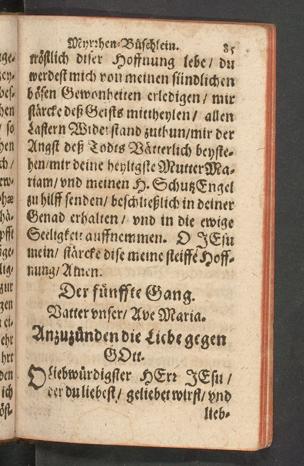 Myrrhen-Büschlein. 85
tröstlich diser Hoffnung lebe / du
werdest mich von meinen sündlichen
bösen Gewonheiten erledigen / mir
stärcke deß Geists mittheylen / allen
Lastern Widerstand zuthun / mir der
Angst deß Todts Vätterlich beyste-
hen / mir deine heyligste Mutter Ma-
riam / vnd meinen H. Schutz Engel
zu hilff senden / beschließlich in deiner
Genad erhalten / vnd in die ewige
Seeligkeit auffnemmen. O JEsu
mein / stärcke dise meine steiffe Hoff-
nung / Amen.
Der fünffte Gang.
Vatter vnser / Ave Maria.
Anzuzünden die Liebe gegen
GOtt.
O Liebwürdigster HErr JEsu /
der du liebest / geliebet wirst / vnd
lieb-